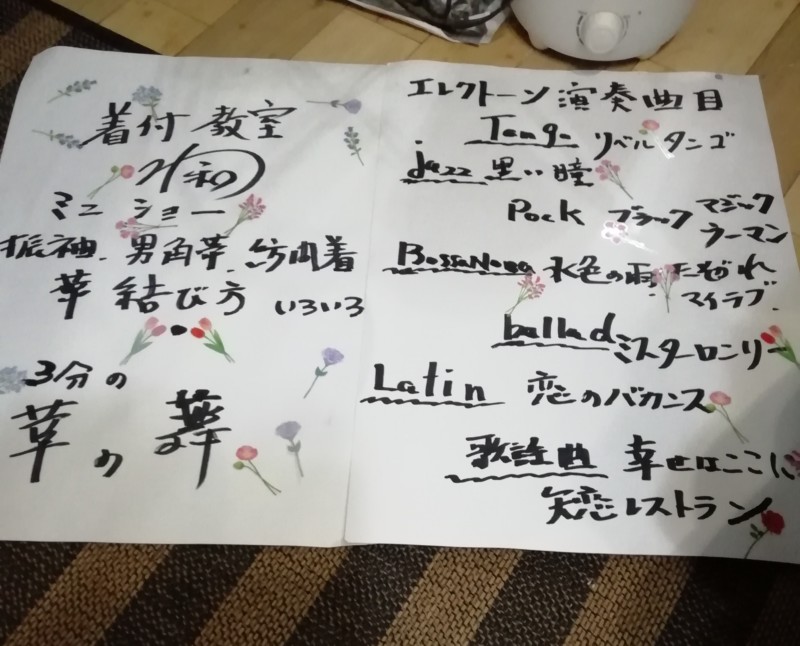 着付教室
ミニショー
振袖、男角帯、訪問着
結び方 いろいろ
3分の
の
エレクトーン演奏曲目
Tango リベルタンゴ
jazz 黒い瞳
Rock ブラックマジック
ウーマン
BossaNova 水色の雨 たそがれ
マイラブ
ballad ミスターロンリー
Latin 恋のバカンス
歌謡曲 幸せはここに
矢恋レストラン